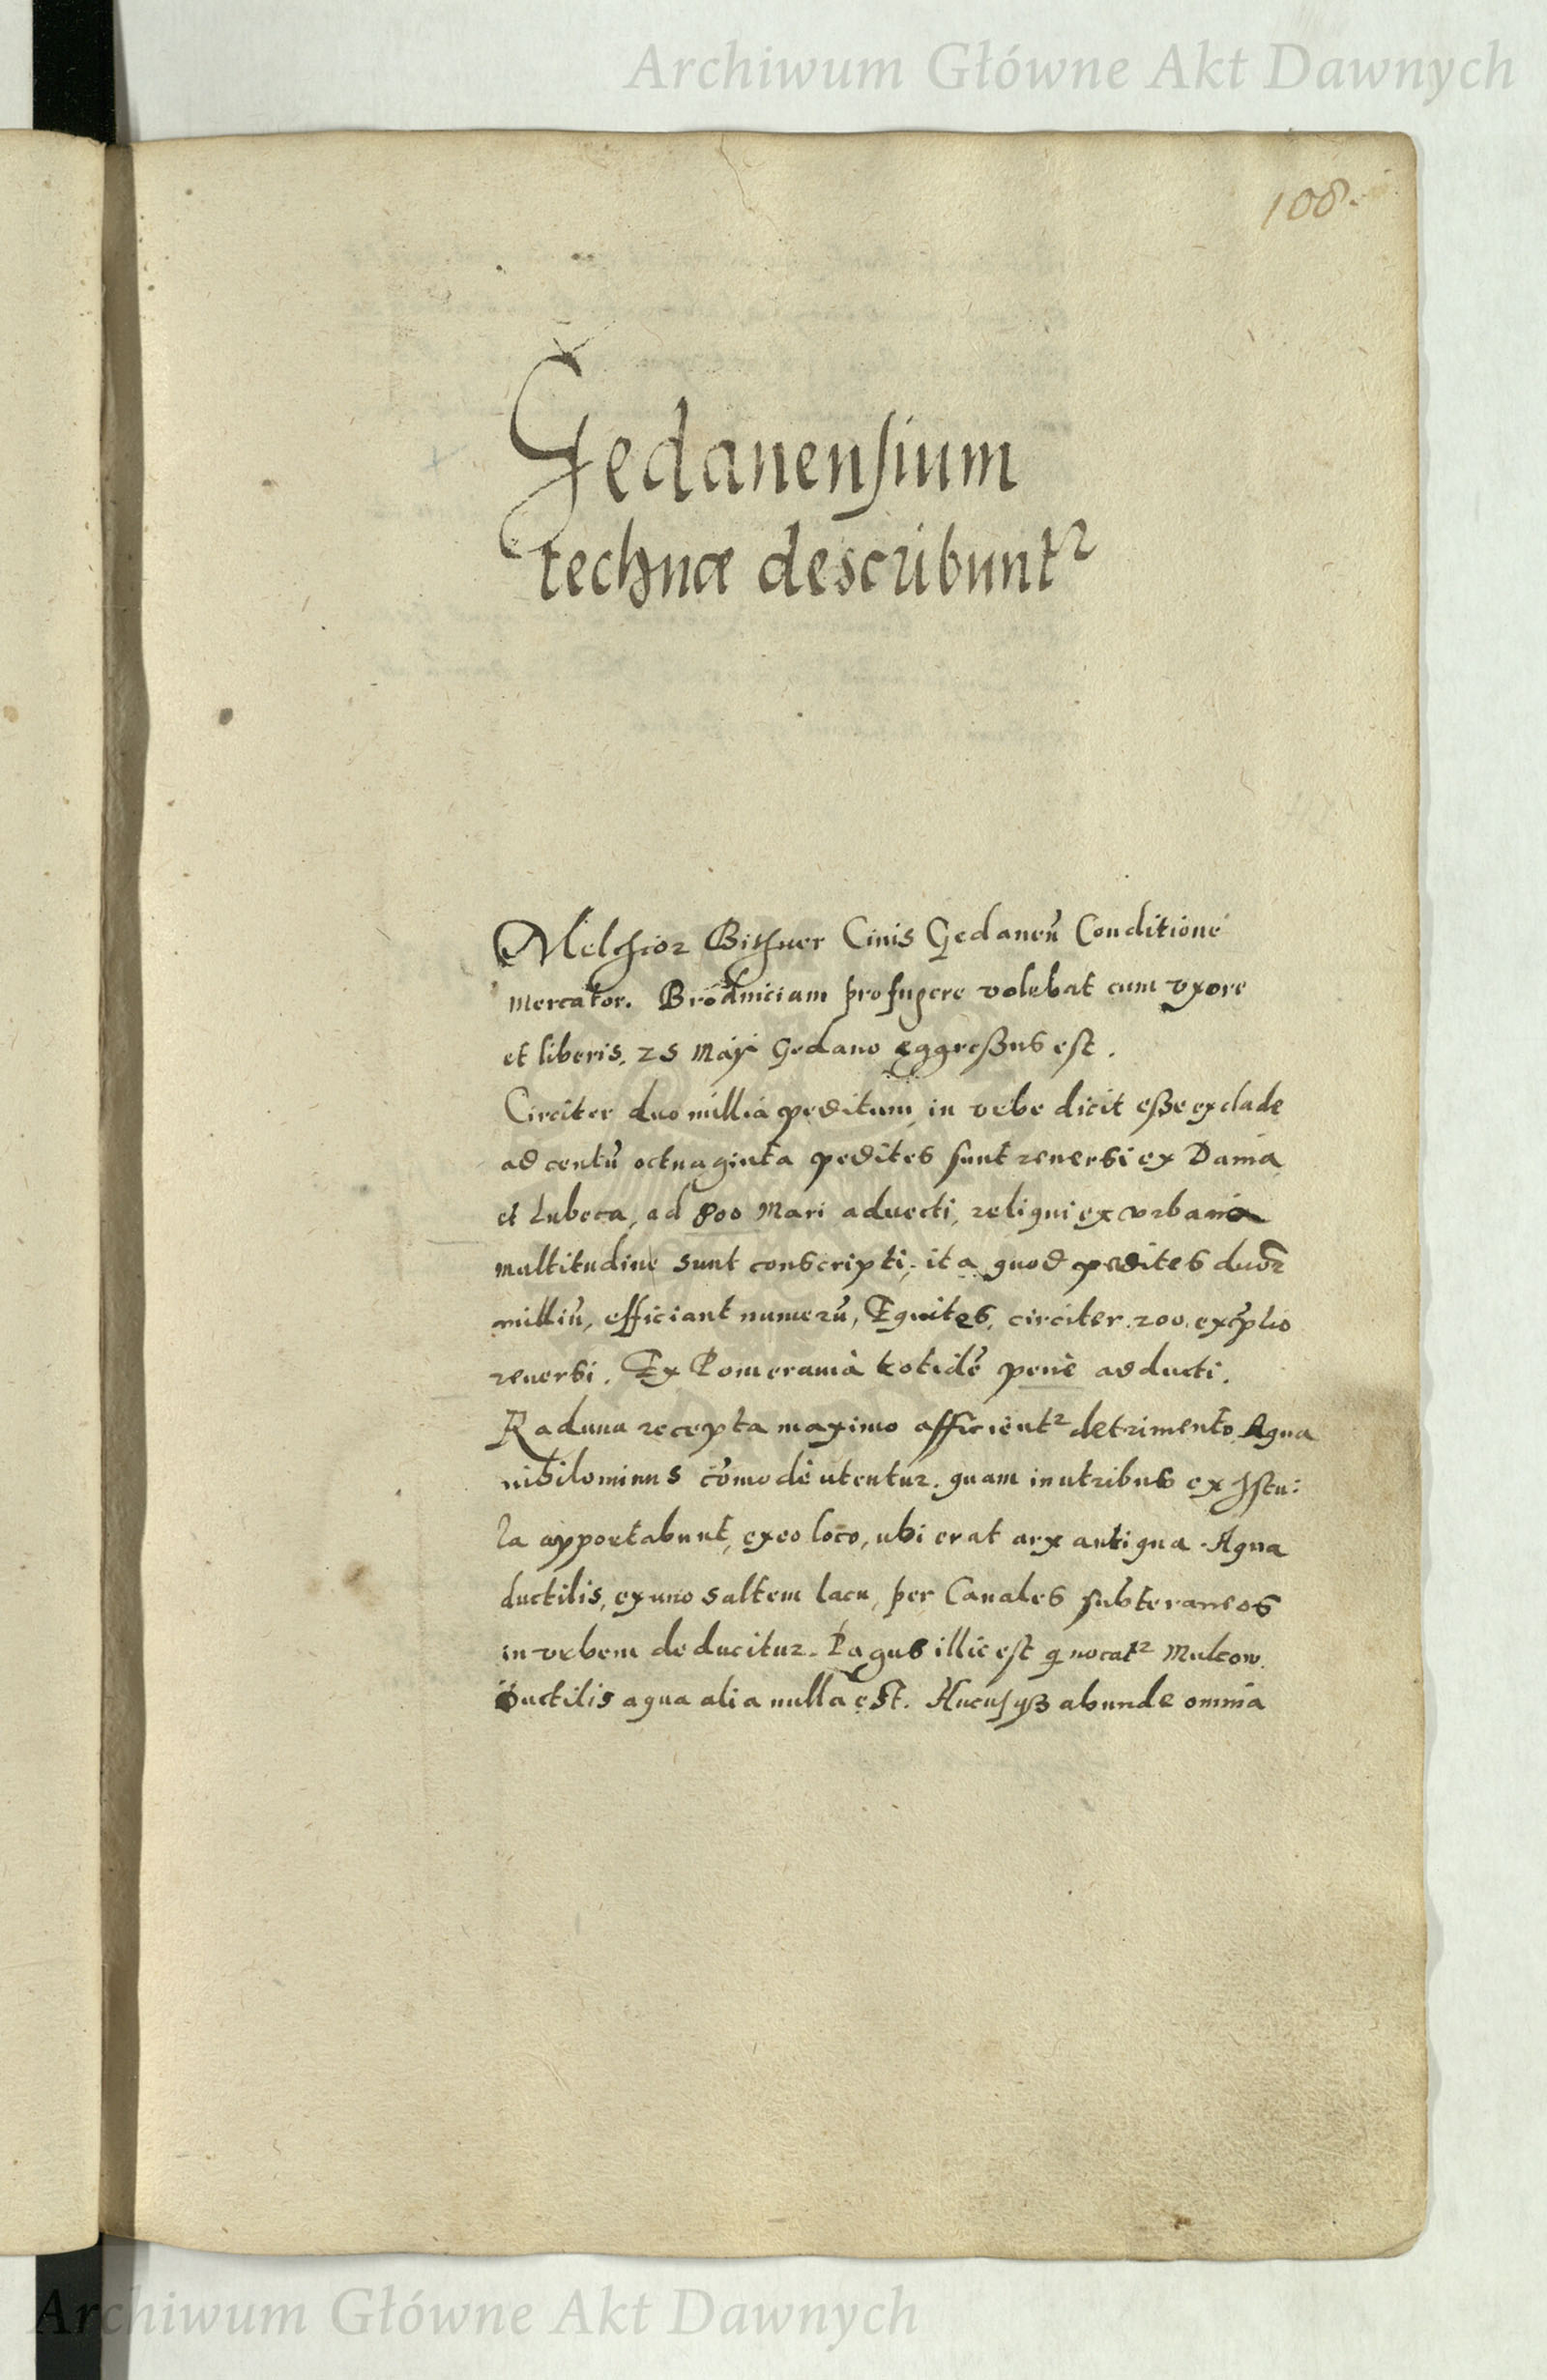 Archiwum Główne Akt Dawnych
108.
Gedanensium
technæ describunt²
Melchior Bithner Ciuis Gedaneñ Conditione
mercator. Brodniciam profugere volebat cum vxore
et liberis. 25 Maÿ Gedano eggreßus est.
Circiter duo millia peditum, in vrbe dicit eße ex clade
ad centũ octuaginta pedites sunt reuersi ex Dania
et Lubeca, ad 800 Mari aduecti, reliqui ex vrbana
multitudine sunt conscripti, ita quod pedites duoꝝ
milliũ, efficiant numerũ, Equites, circiter 200. ex prælio
reuersi. Ex Pomerania totidẽ penè adducti.
Raduna recepta maximo afficient² detrimento Aqua
nihilominus cõmodè utentur. quam in utribus ex Istu:
la apportabunt, ex eo loco, ubi erat arx antiqua. Aqua
ductilis, ex uno saltem lacu, per Canales subteraneos
in vrbem deducitur. Pagus illic est q uocat² Mulcow.
Ductilis aqua alia nulla est. Hucusqꝫ abunde omnia
Archiwum Główne Akt Dawnych